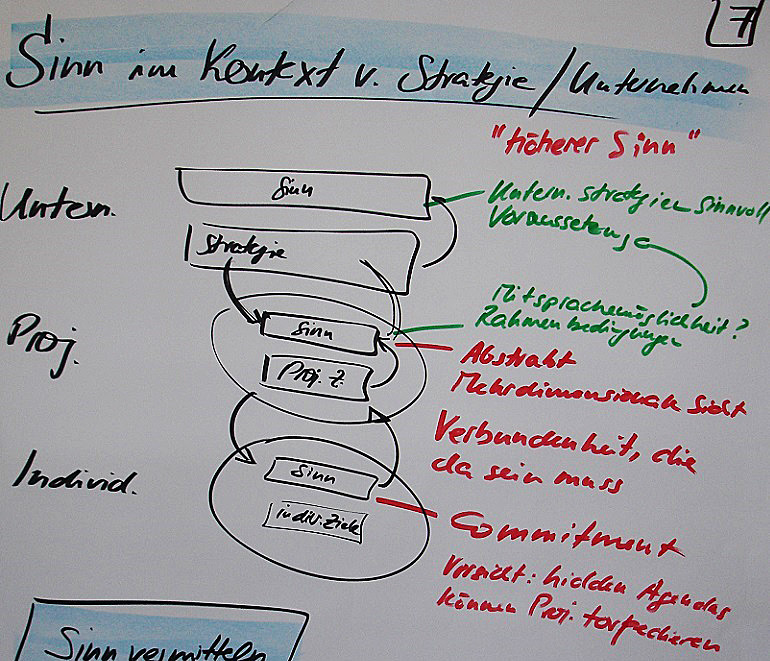 7
Sinn im Kontext v. Strategie / Unternehmen
"Höherer Sinn"
Untern.
Sinn
Untern. strategien sinnvoll
Voraussetzung
Strategie
Mitsprachemöglichkeit?
Rahmenbedingungen
Proj.
Sinn
Proj. Z.
Abstrakt
Mehrdimensionale Sicht
Verbundenheit, die
da sein muss
Individ.
Sinn
indiv. Ziele
Commitment
Vorsicht: hidden Agendas
können Proj. torpedieren
Sinn vermitteln